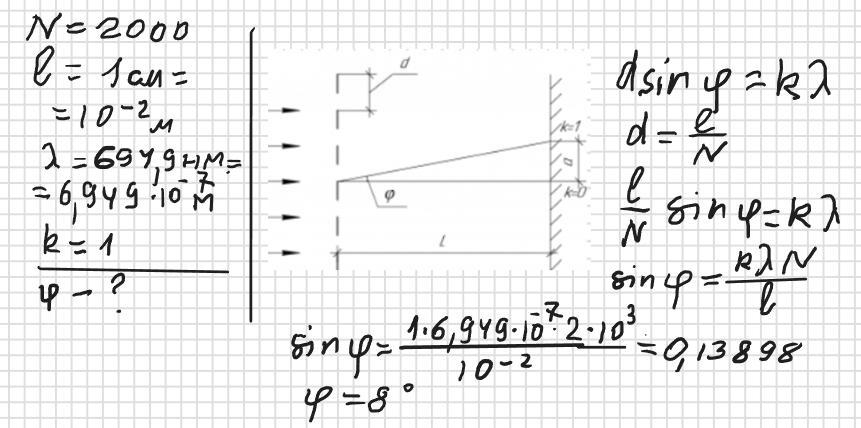 N = 2000
ℓ = 1 см =
= 10⁻² м
λ = 694,9 нм =
= 6,949·10⁻⁷ м
k = 1
φ - ?
d
k=1
a
φ
k=0
l
d sin φ = kλ
d = ℓ/N
ℓ/N sin φ = kλ
sin φ = kλN/ℓ
sin φ = 1·6,949·10⁻⁷·2·10³/10⁻² = 0,13898
φ = 8°